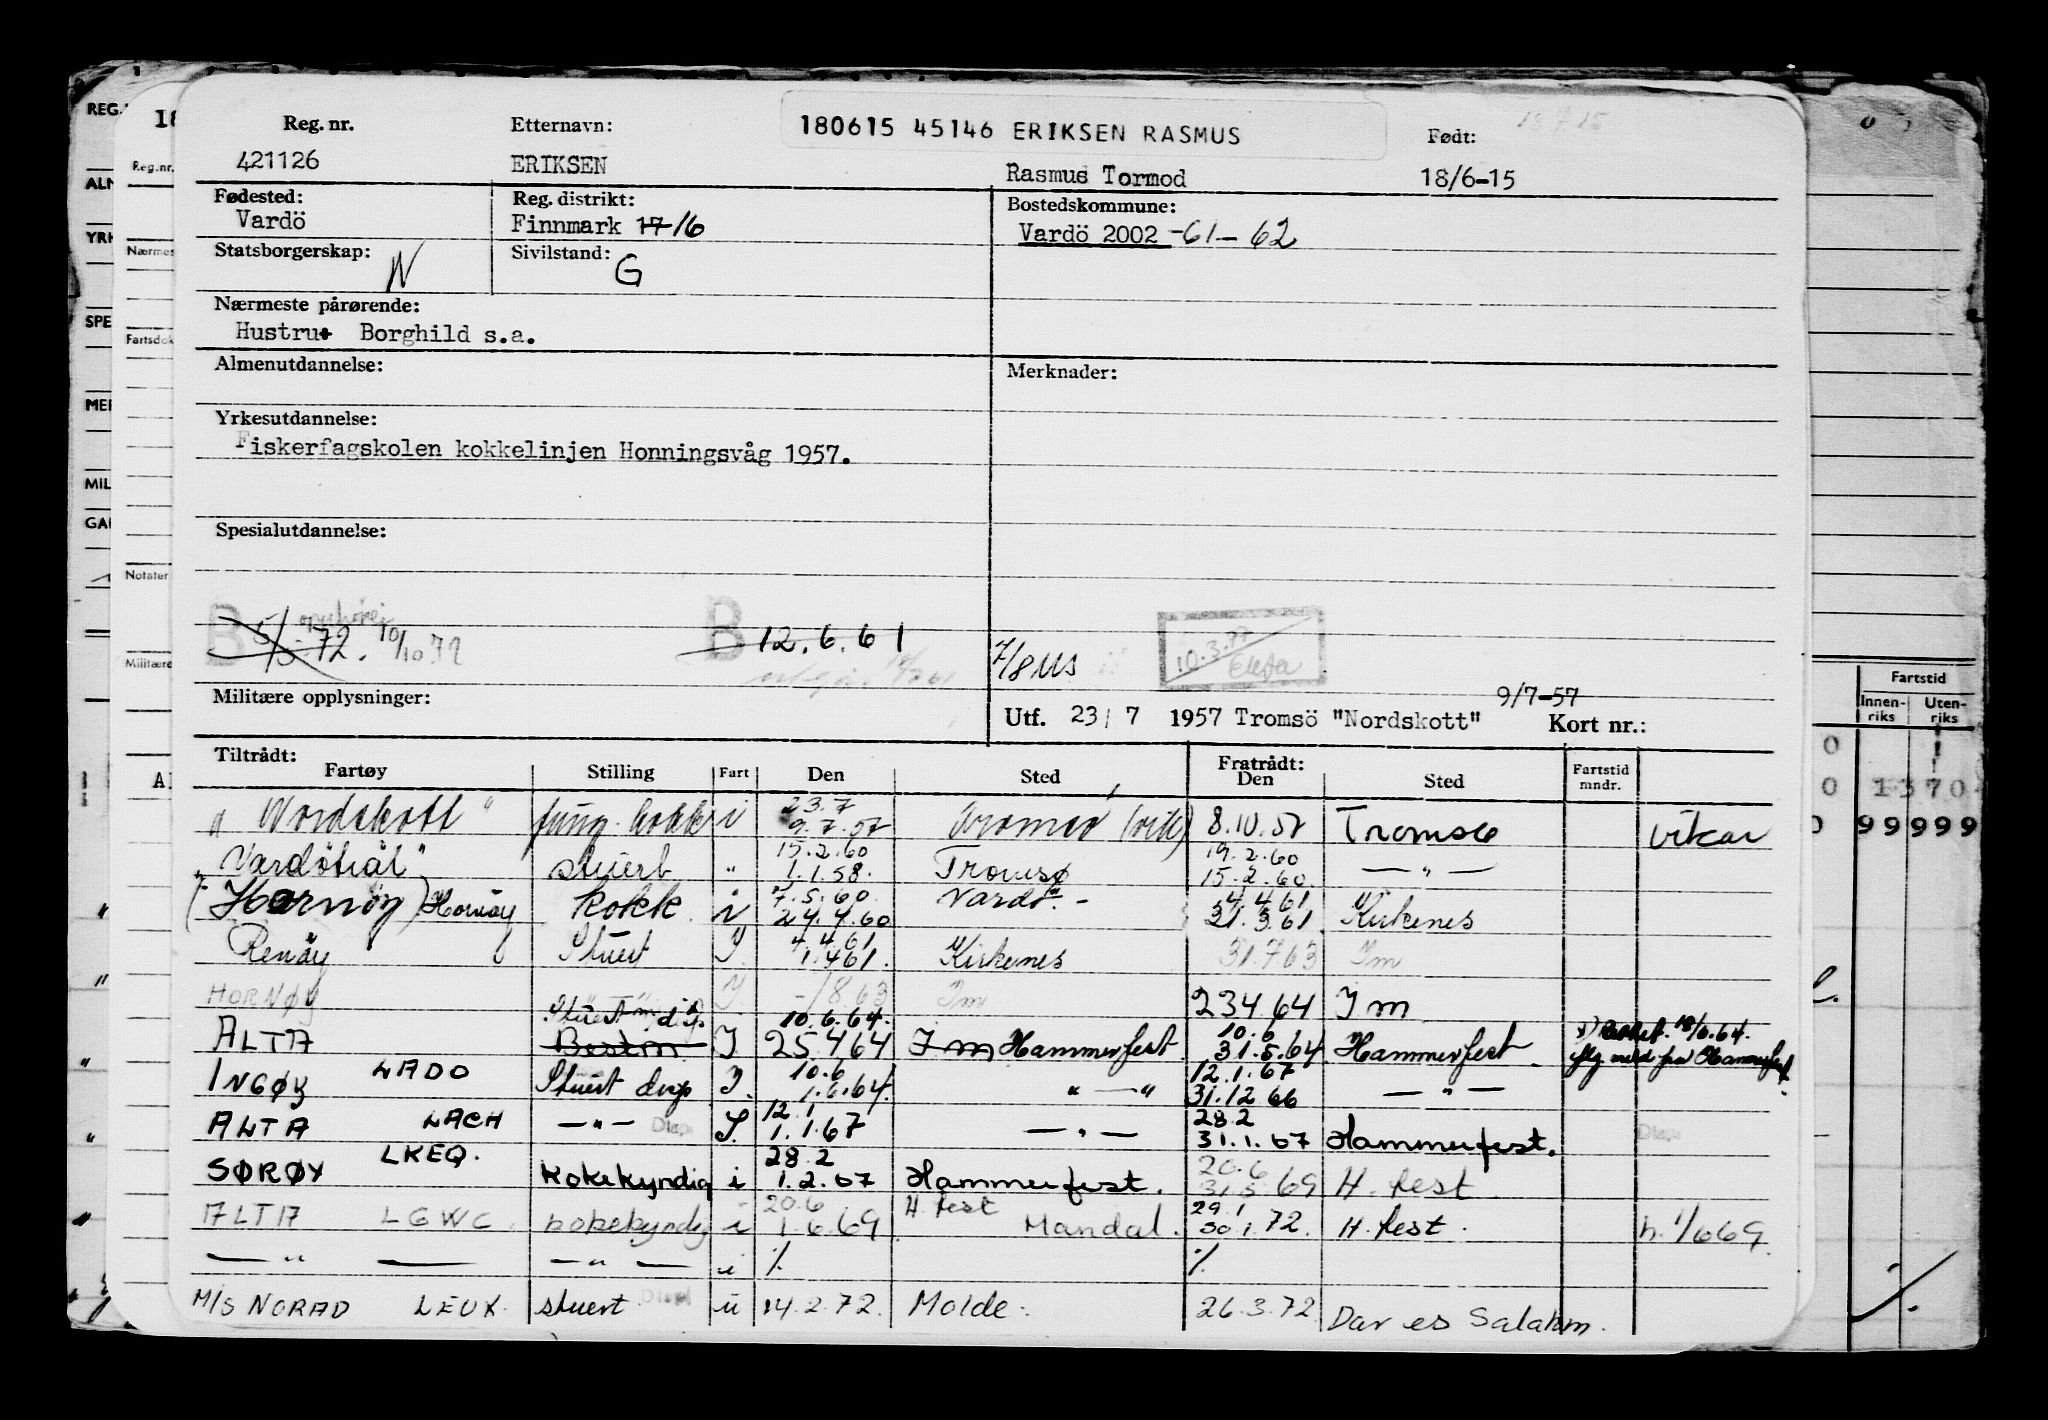 180615 45146 ERIKSEN RASMUS
Reg. nr. Etternavn: Født:
421126 ERIKSEN Rasmus Tormod 18/6-15
Fødested: Reg. distrikt: Bostedskommune:
Vardö Finnmark 17 16 Vardö 2002 -61-62
Statsborgerskap: Sivilstand:
N G
Nærmeste pårørende:
Hustru Borghild s.a.
Almenutdannelse: Merknader:
Yrkesutdannelse:
Fiskerfagskolen kokkelinjen Honningsvåg 1957.
Spesialutdannelse:
B 10/10 72 B 12.6.61
10.3.72
Militære opplysninger:
9/7-57
Utf. 23/7 1957 Tromsö "Nordskott" Kort nr.:
Tiltrådt: Fratrådt:
Fartøy Stilling Fart Den Sted Den Sted Fartstid mndr.
23.7
"Nordskott" fung. kokk i 9.7.57 Tromsö 8.10.57 Tromsö vikar
15.2.60 19.2.60
"Vardötrål" stuert " 1.1.58. Tromsø 15.2.60 — " —
7.5.60 4.4.61
(Hornöy) Hornöy kokk i 24.4.60 Vardö 31.3.61 Kirkenes
4.4.61
Renöy Stuert I 1.4.61. Kirkenes 31.7.63 Im
HORNØY — " — I - 1/8.63 Im 23464 Im
Stuert m disp. 10.6.64. 10.6
ALTA Bestm I 25464 Im Hammerfest 31.5.64 Hammerfest
LADO 10.6 12.1.67
INGØY Stuert disp I. 1.6.64. " — " 31.12 66 — " —
LACH 12.1 28.2
ALTA — " — Disp I. 1.1.67 — " — 31.1.67 Hammerfest.
LKEQ. 28.2 20.6
SØRØY kokekyndig i 1.2.67 Hammerfest. 31.5 69 H. fest
20.6 H. fest 29.1
ALTA LGWC. kokekyndig i 1.6.69 Mandal. 30.1.72. H. fest. n. 1/669.
— " — — " — i ./. ./.
M/S NORAD LEUX. stuert Displ u 14.2.72. Molde. 26.3.72 Dar es Salaam.
REG.
ALM
YRK
SPE
MER
MIL
GAR
18
Reg.nr.
Nærmes
Fartsdok
Notater
Militære
Al
Fartstid
Innenriks Utenriks
0
0 1370
0 99999